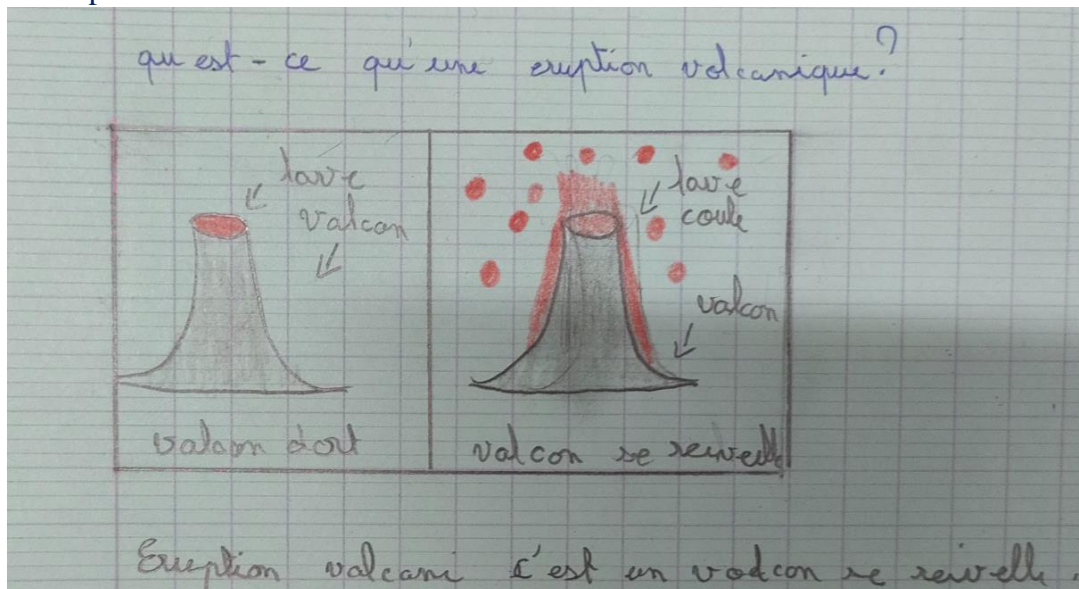 qu'est-ce qu'une eruption volcanique?
lave
valcon
lave
coule
valcon
valcon dort
valcon se reivelle
Eruption valcani c'est un vodcon se reivelle.